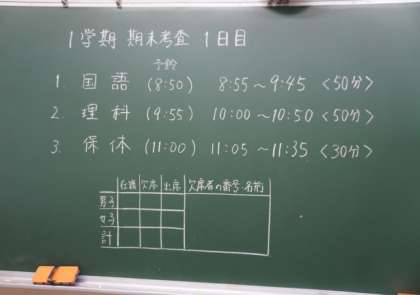 1学期 期末考査 1日目
予鈴
1. 国語 (8:50) 8:55〜9:45 <50分>
2. 理科 (9:55) 10:00〜10:50 <50分>
3. 保体 (11:00) 11:05〜11:35 <30分>
在籍 欠席 出席 欠席者の番号・名前
男子
女子
計